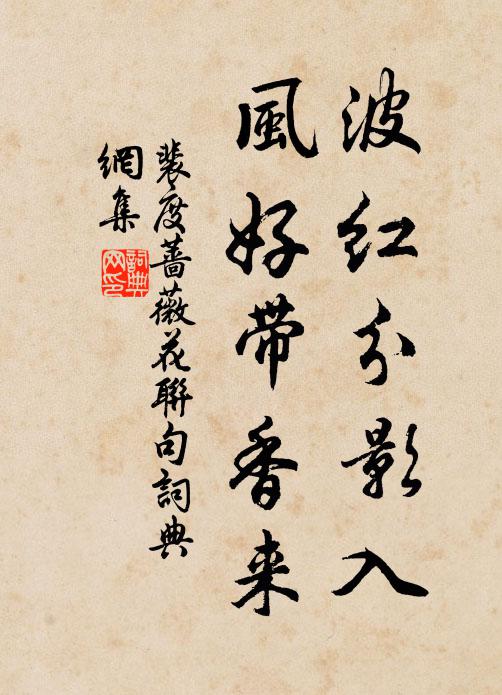 波红分影入
風好带香来
裴度蔷薇花聯句詞典
網集
詞典
网印